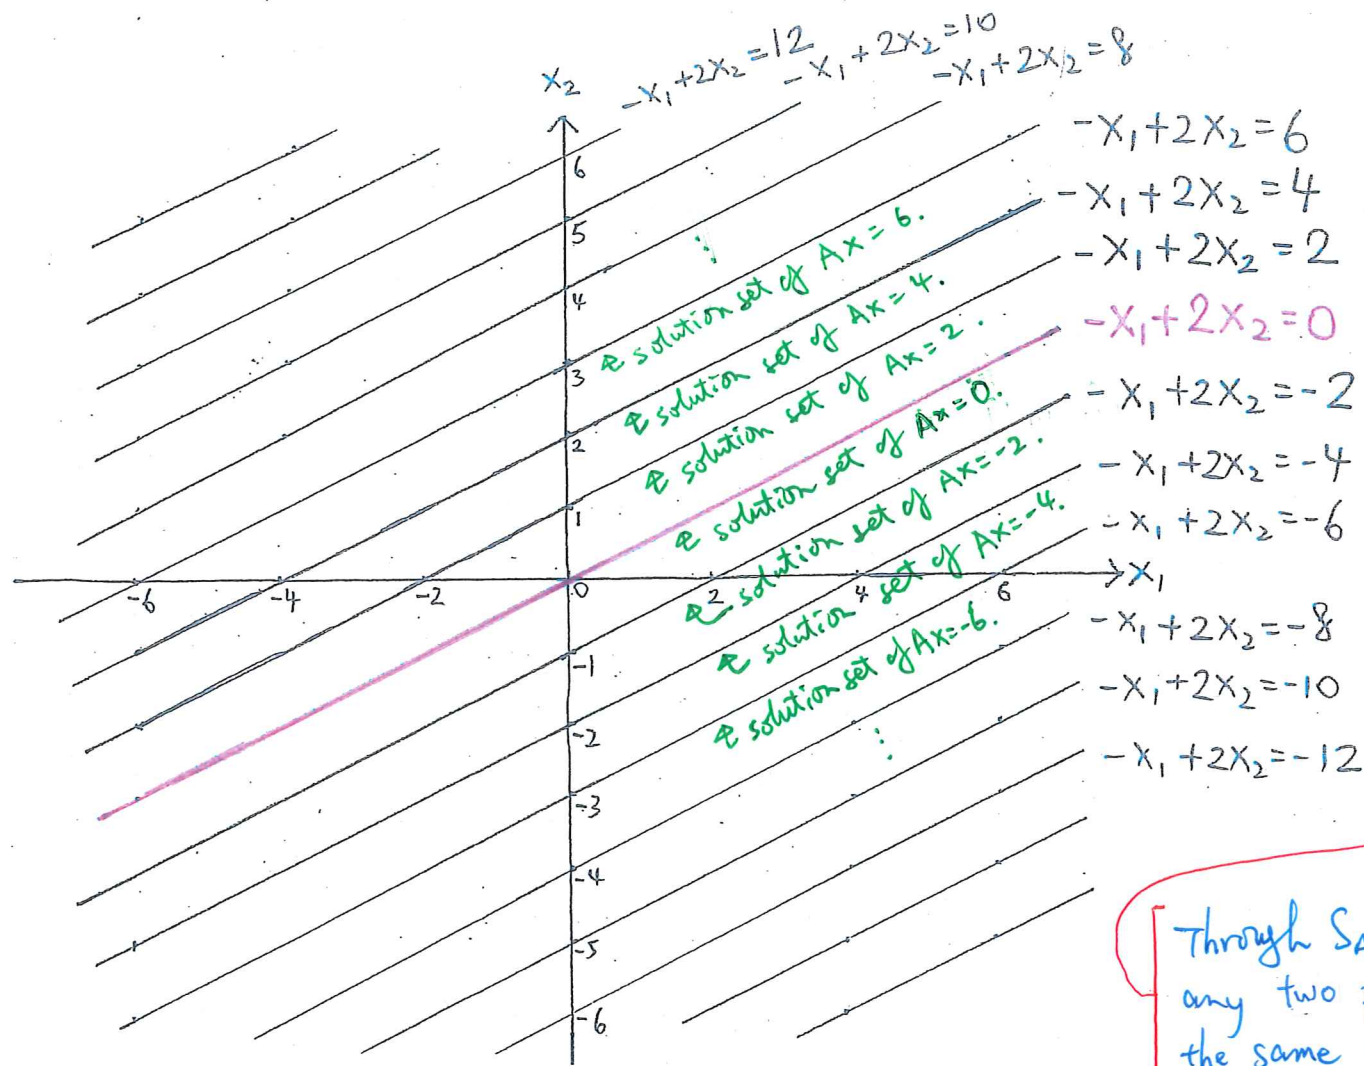 -x₁+2x₂=12
-x₁+2x₂=10
-x₁+2x₂=8
x₂
-x₁+2x₂=6
-x₁+2x₂=4
-x₁+2x₂=2
-x₁+2x₂=0
-x₁+2x₂=-2
-x₁+2x₂=-4
-x₁+2x₂=-6
x₁
-x₁+2x₂=-8
-x₁+2x₂=-10
-x₁+2x₂=-12
6
5
4
3
2
1
0
-1
-2
-3
-4
-5
-6
-6 -4 -2 2 4 6
⋮
solution set of Ax=6.
solution set of Ax=4.
solution set of Ax=2.
solution set of Ax=0.
solution set of Ax=-2.
solution set of Ax=-4.
solution set of Ax=-6.
⋮
Through
any two
the same